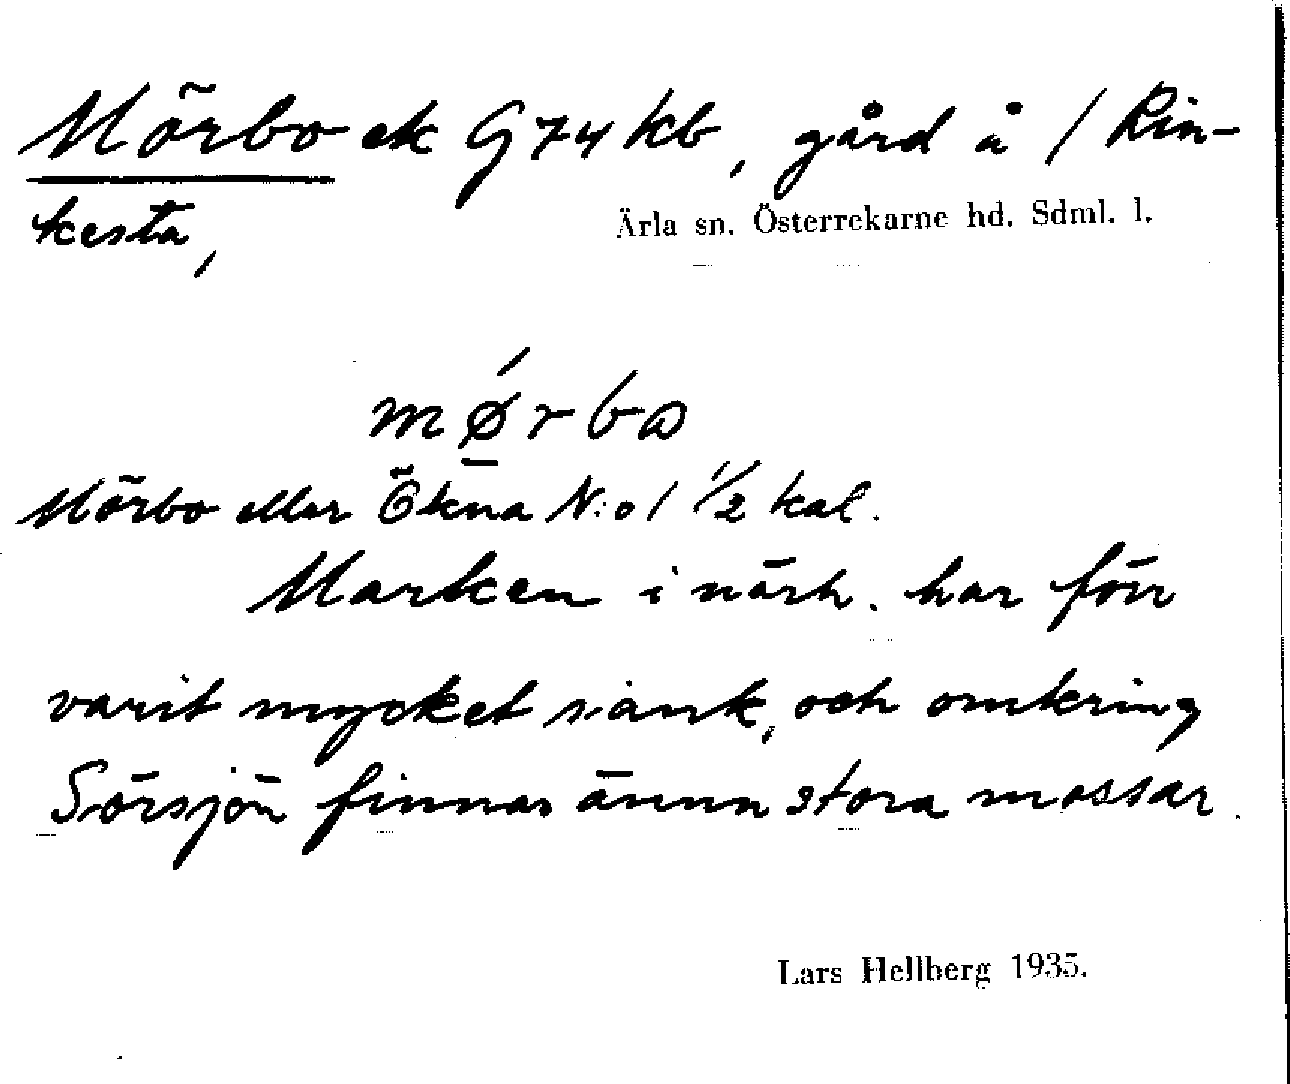 Mörbo ek G74 kb, gård å 1 Rin-
kesta,
Ärla sn. Österrekarne hd. Sdml. l.
mǿrbω
Mörbo eller Ökna N:o 1 1/2 kal.
Marken i närh. har förr
varit mycket sank, och omkring
Sörsjön finnas ännu stora mossar.
Lars Hellberg 1935.